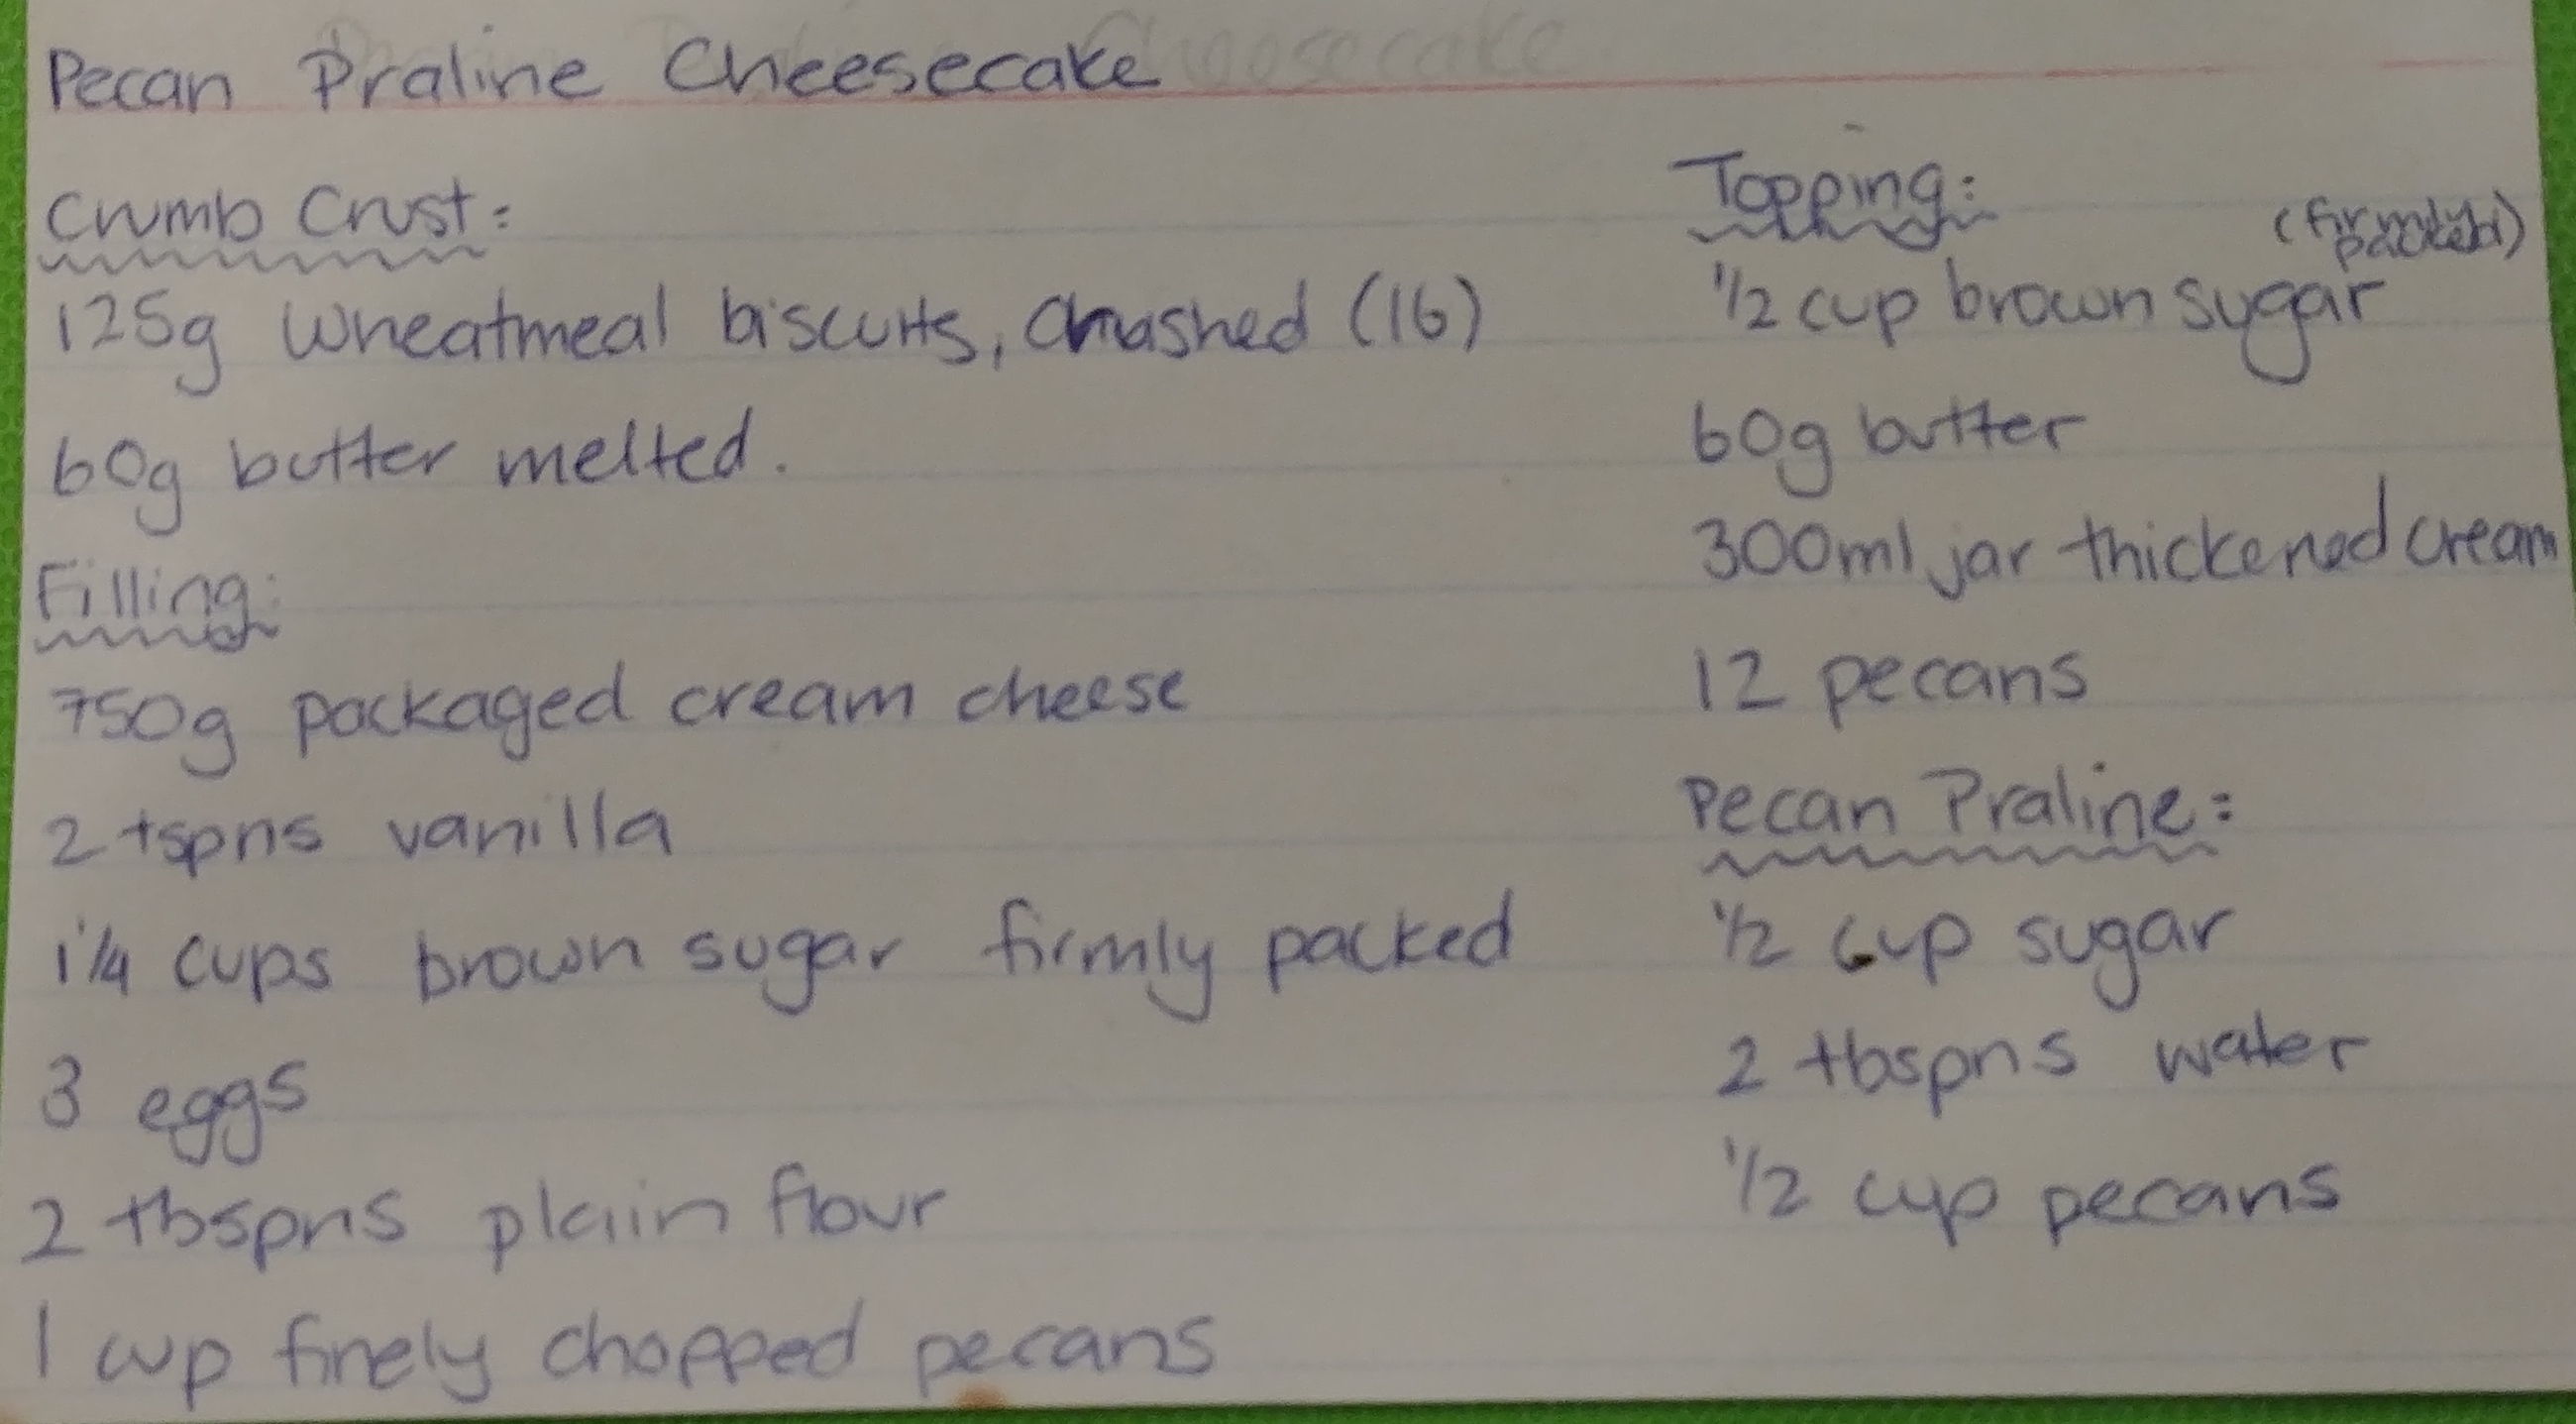 Pecan Praline Cheesecake
Crumb Crust:
125g wheatmeal biscuits, crushed (16)
60g butter melted.
Filling:
750g packaged cream cheese
2 tspns vanilla
1 1/4 cups brown sugar firmly packed
3 eggs
2 tbspns plain flour
1 cup finely chopped pecans
Topping:
(firmly packed)
1/2 cup brown sugar
60g butter
300ml jar thickened cream
12 pecans
Pecan Praline:
1/2 cup sugar
2 tbspns water
1/2 cup pecans